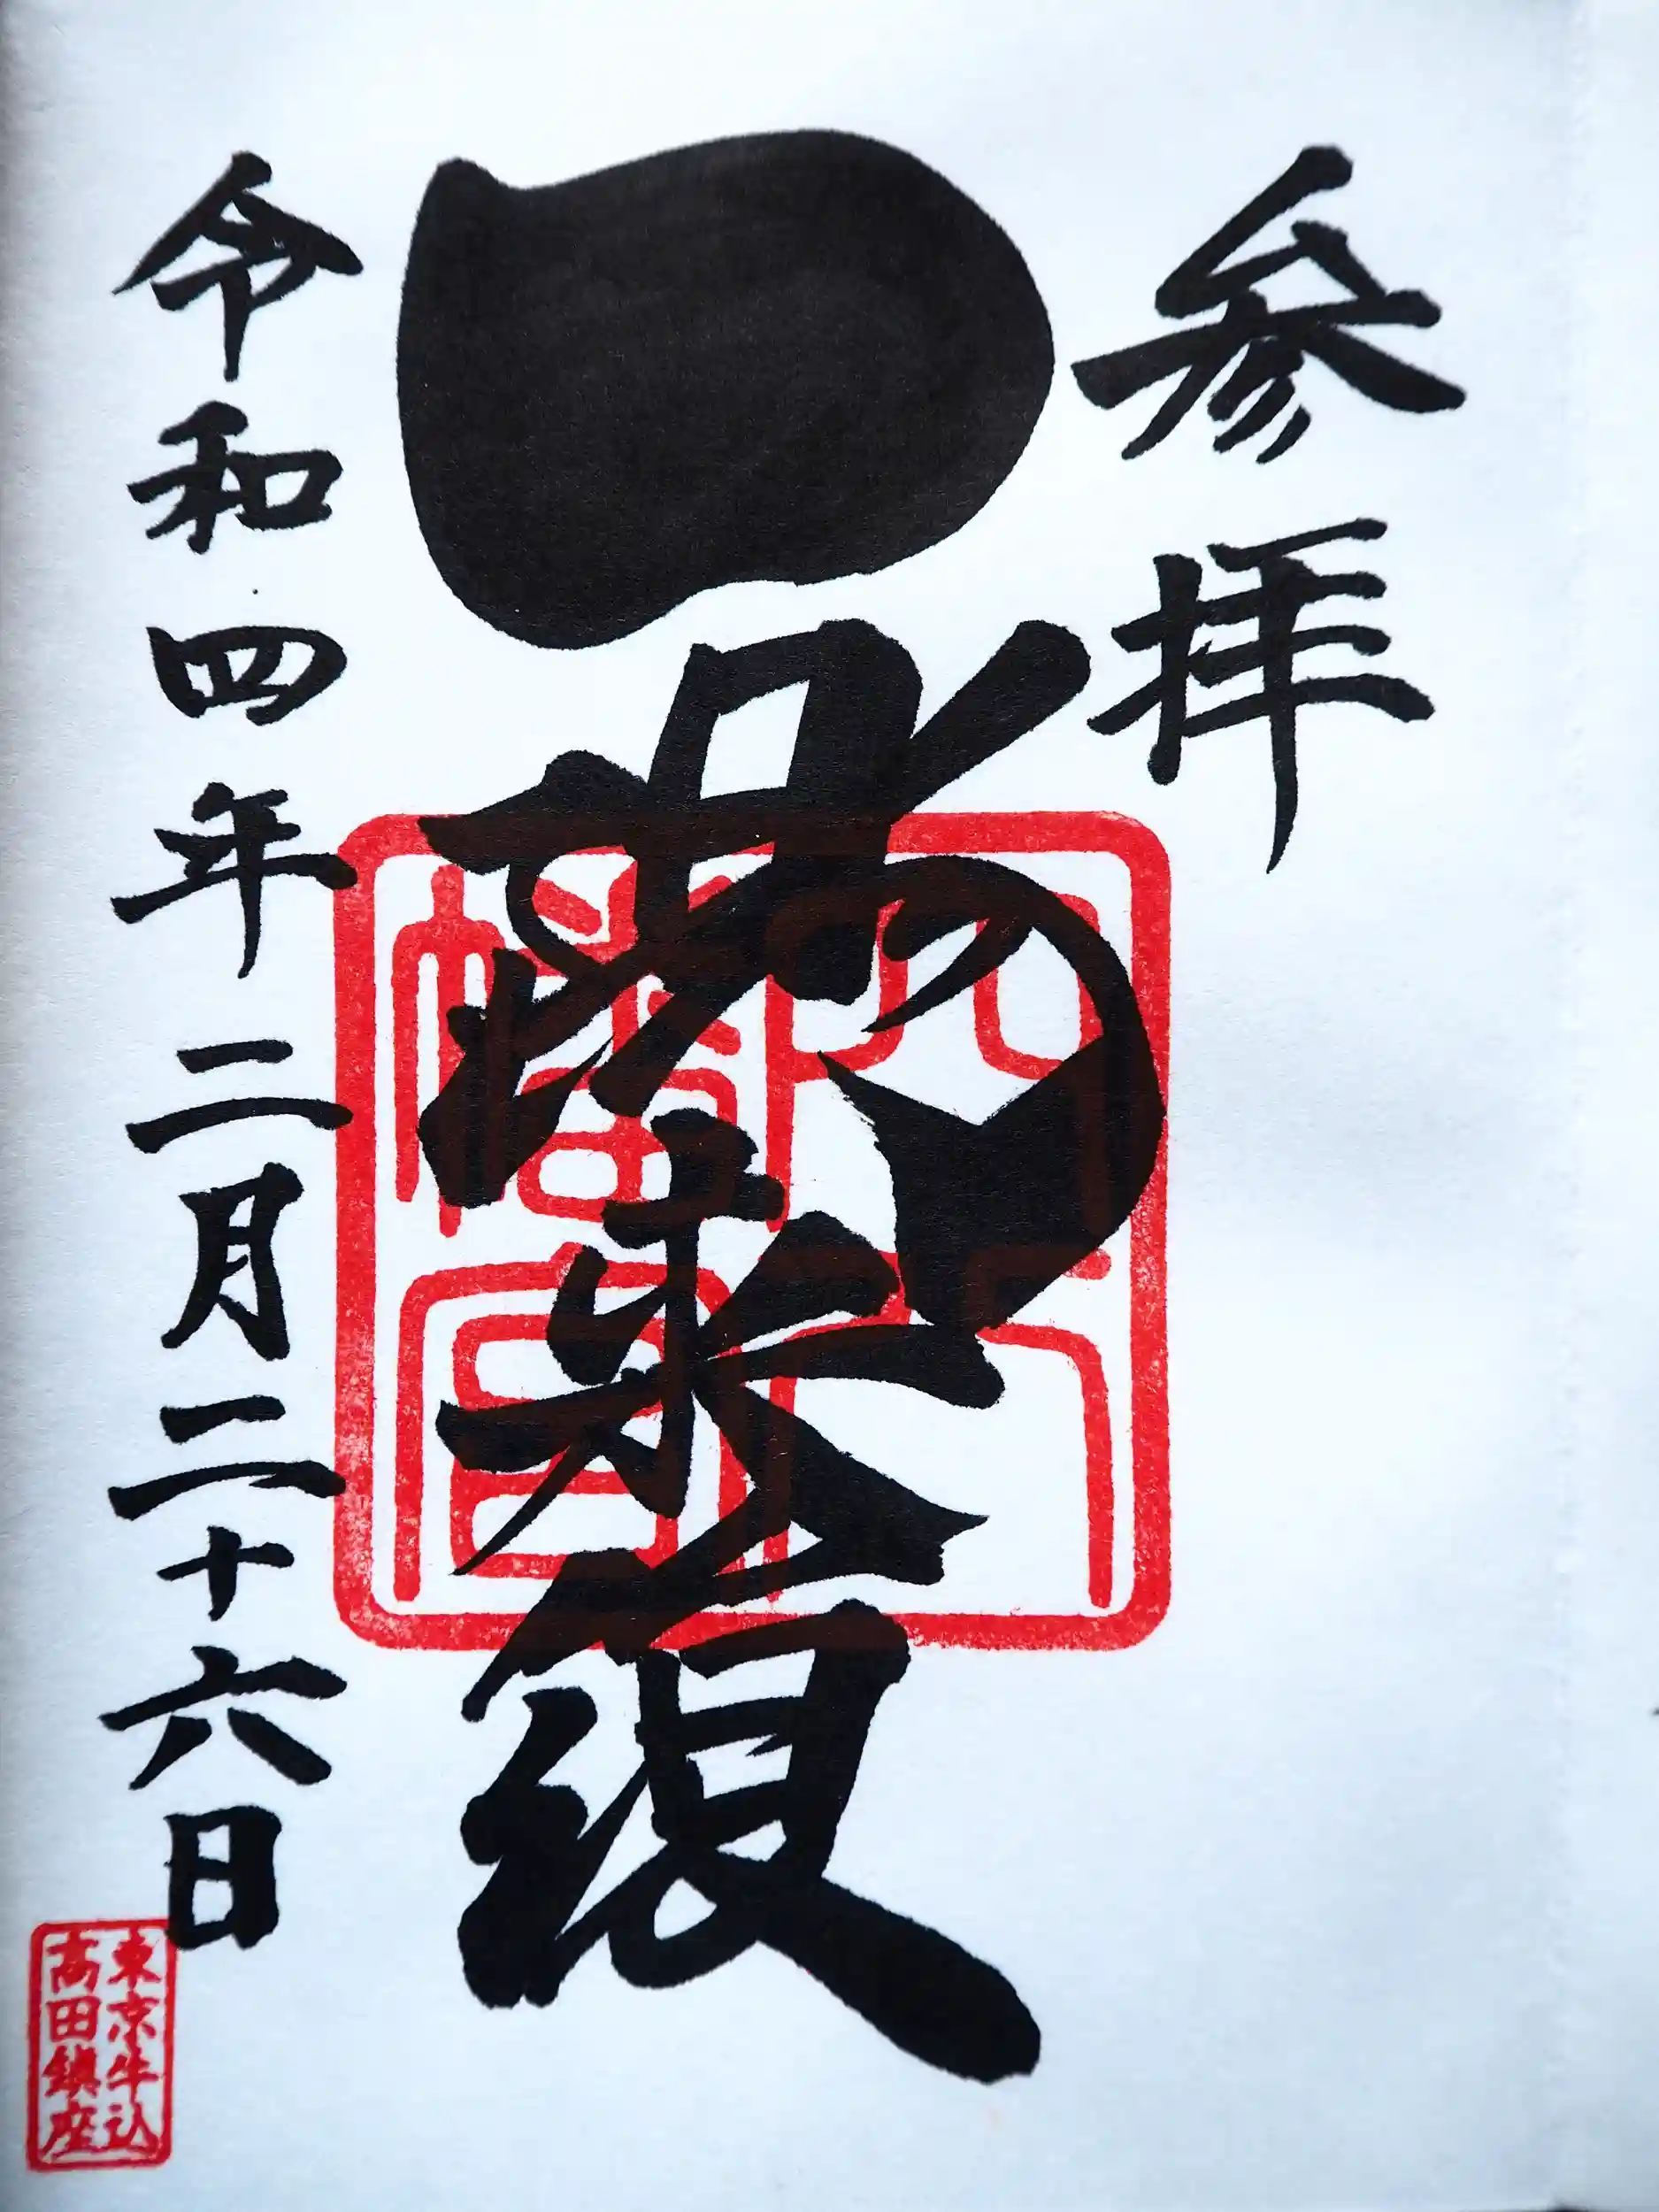 参拝
一陽来復
令和四年二月二十六日
八幡宮
東京牛込
高田鎮座